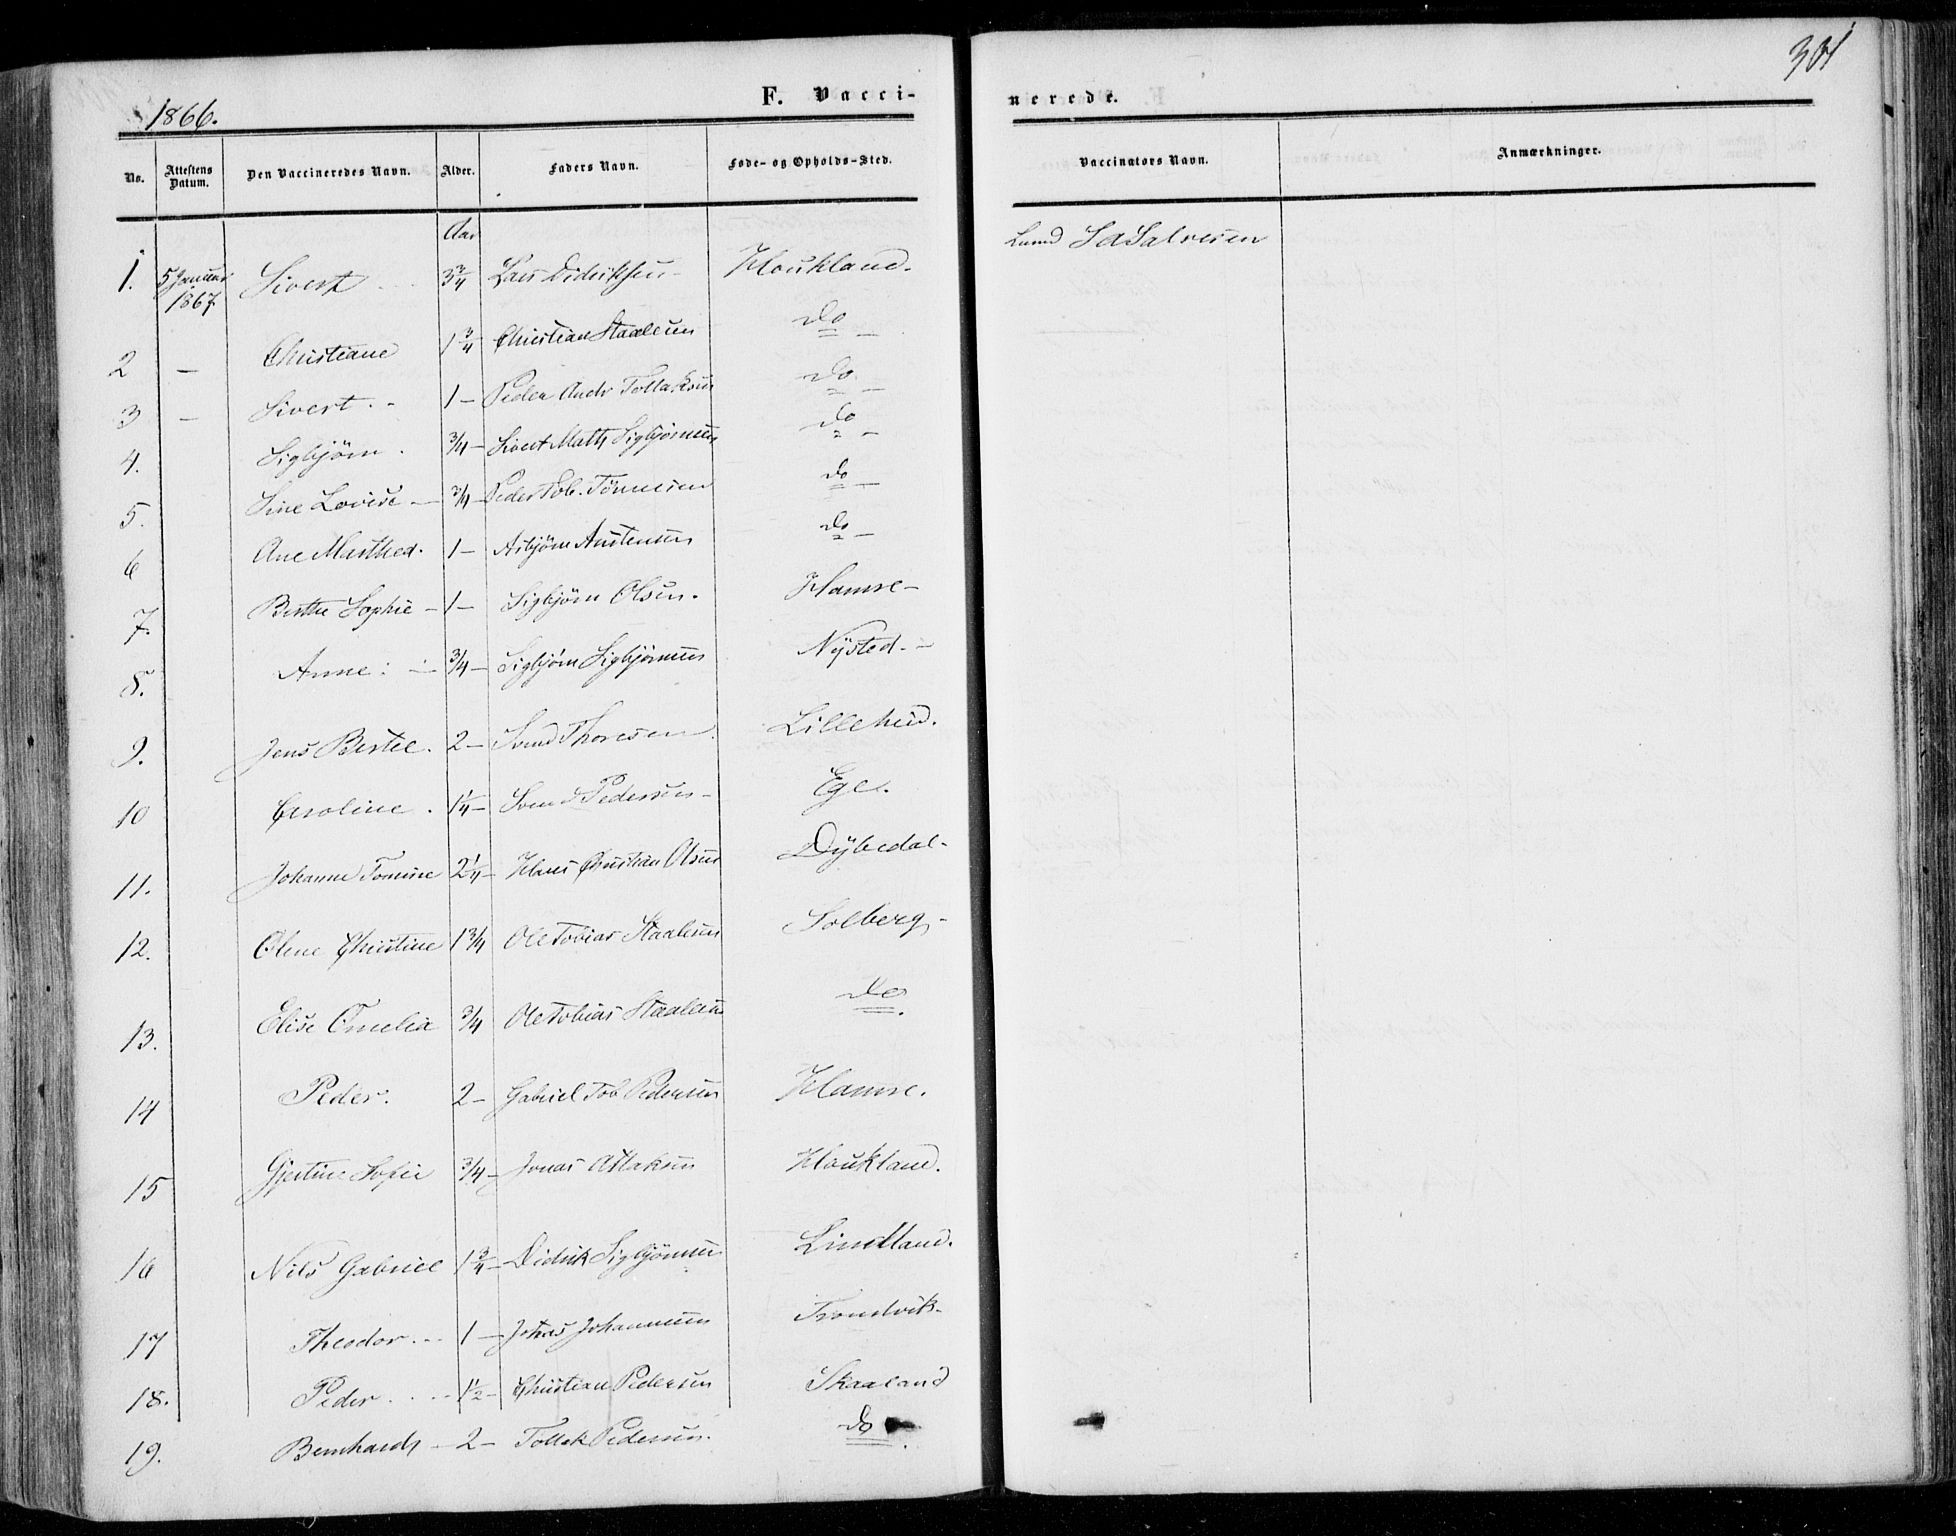 1866.
F. Vacci-
nerede.
301
No. Attestens Datum. Den Vaccineredes Navn. Alder. Faders Navn. Føde- og Opholds-Sted. Vaccinators Navn. Anmærkninger.
Aar
1. 5 Januar 1867 Sivert 3 3/4 Lars Didriksen Houkland. Lund Salvesen
2 — Christiane 1 3/4 Christian Staalesen do —
3 — Sivert. - 1 — Peder Andr Tollaksen do —
4. Sigbjörn. 3/4 — Sivert Math Sigbjörnsen do —
5. Sine Lovise — 3/4 Peder Tob. Tönnesen do —
6 Ane Marthed. 1 — Asbjörn Austensen do —
7. Berthe Sophie — 1 — Sigbjörn Olsen. Hamre —
8. Anne: — 3/4 — Sigbjörn Sigbjörnsen Nysted. —
9. Jens Bertel. 2 — Svend Thoresen Lilleheid.
10 Caroline. 1 1/4 — Svend Pedersen — Ege.
11. Johanne Tomine 2 1/4 — Hans Christian Olsen Dybedal-
12. Olene Christine 1 3/4 Ole Tobias Staalesen Solberg-
13. Elise Omelia 3/4 Ole Tobias Staalesen do.
14 Peder. 2 — Gabriel Tob Pedersen Hamre.
15 Gjertine Sofie 3/4 — Jonas Aslaksen Houkland.
16 Nils Gabriel 1 3/4 — Didrik Sigbjörnsen Lindland.
17 Theodor. .. 1 — Johannessen Trondvik-
18. Peder. . . . 1 1/2 — Christian Pedersen Skaaland
19. Bernhard — 2 — Tollak Pedersen. do.